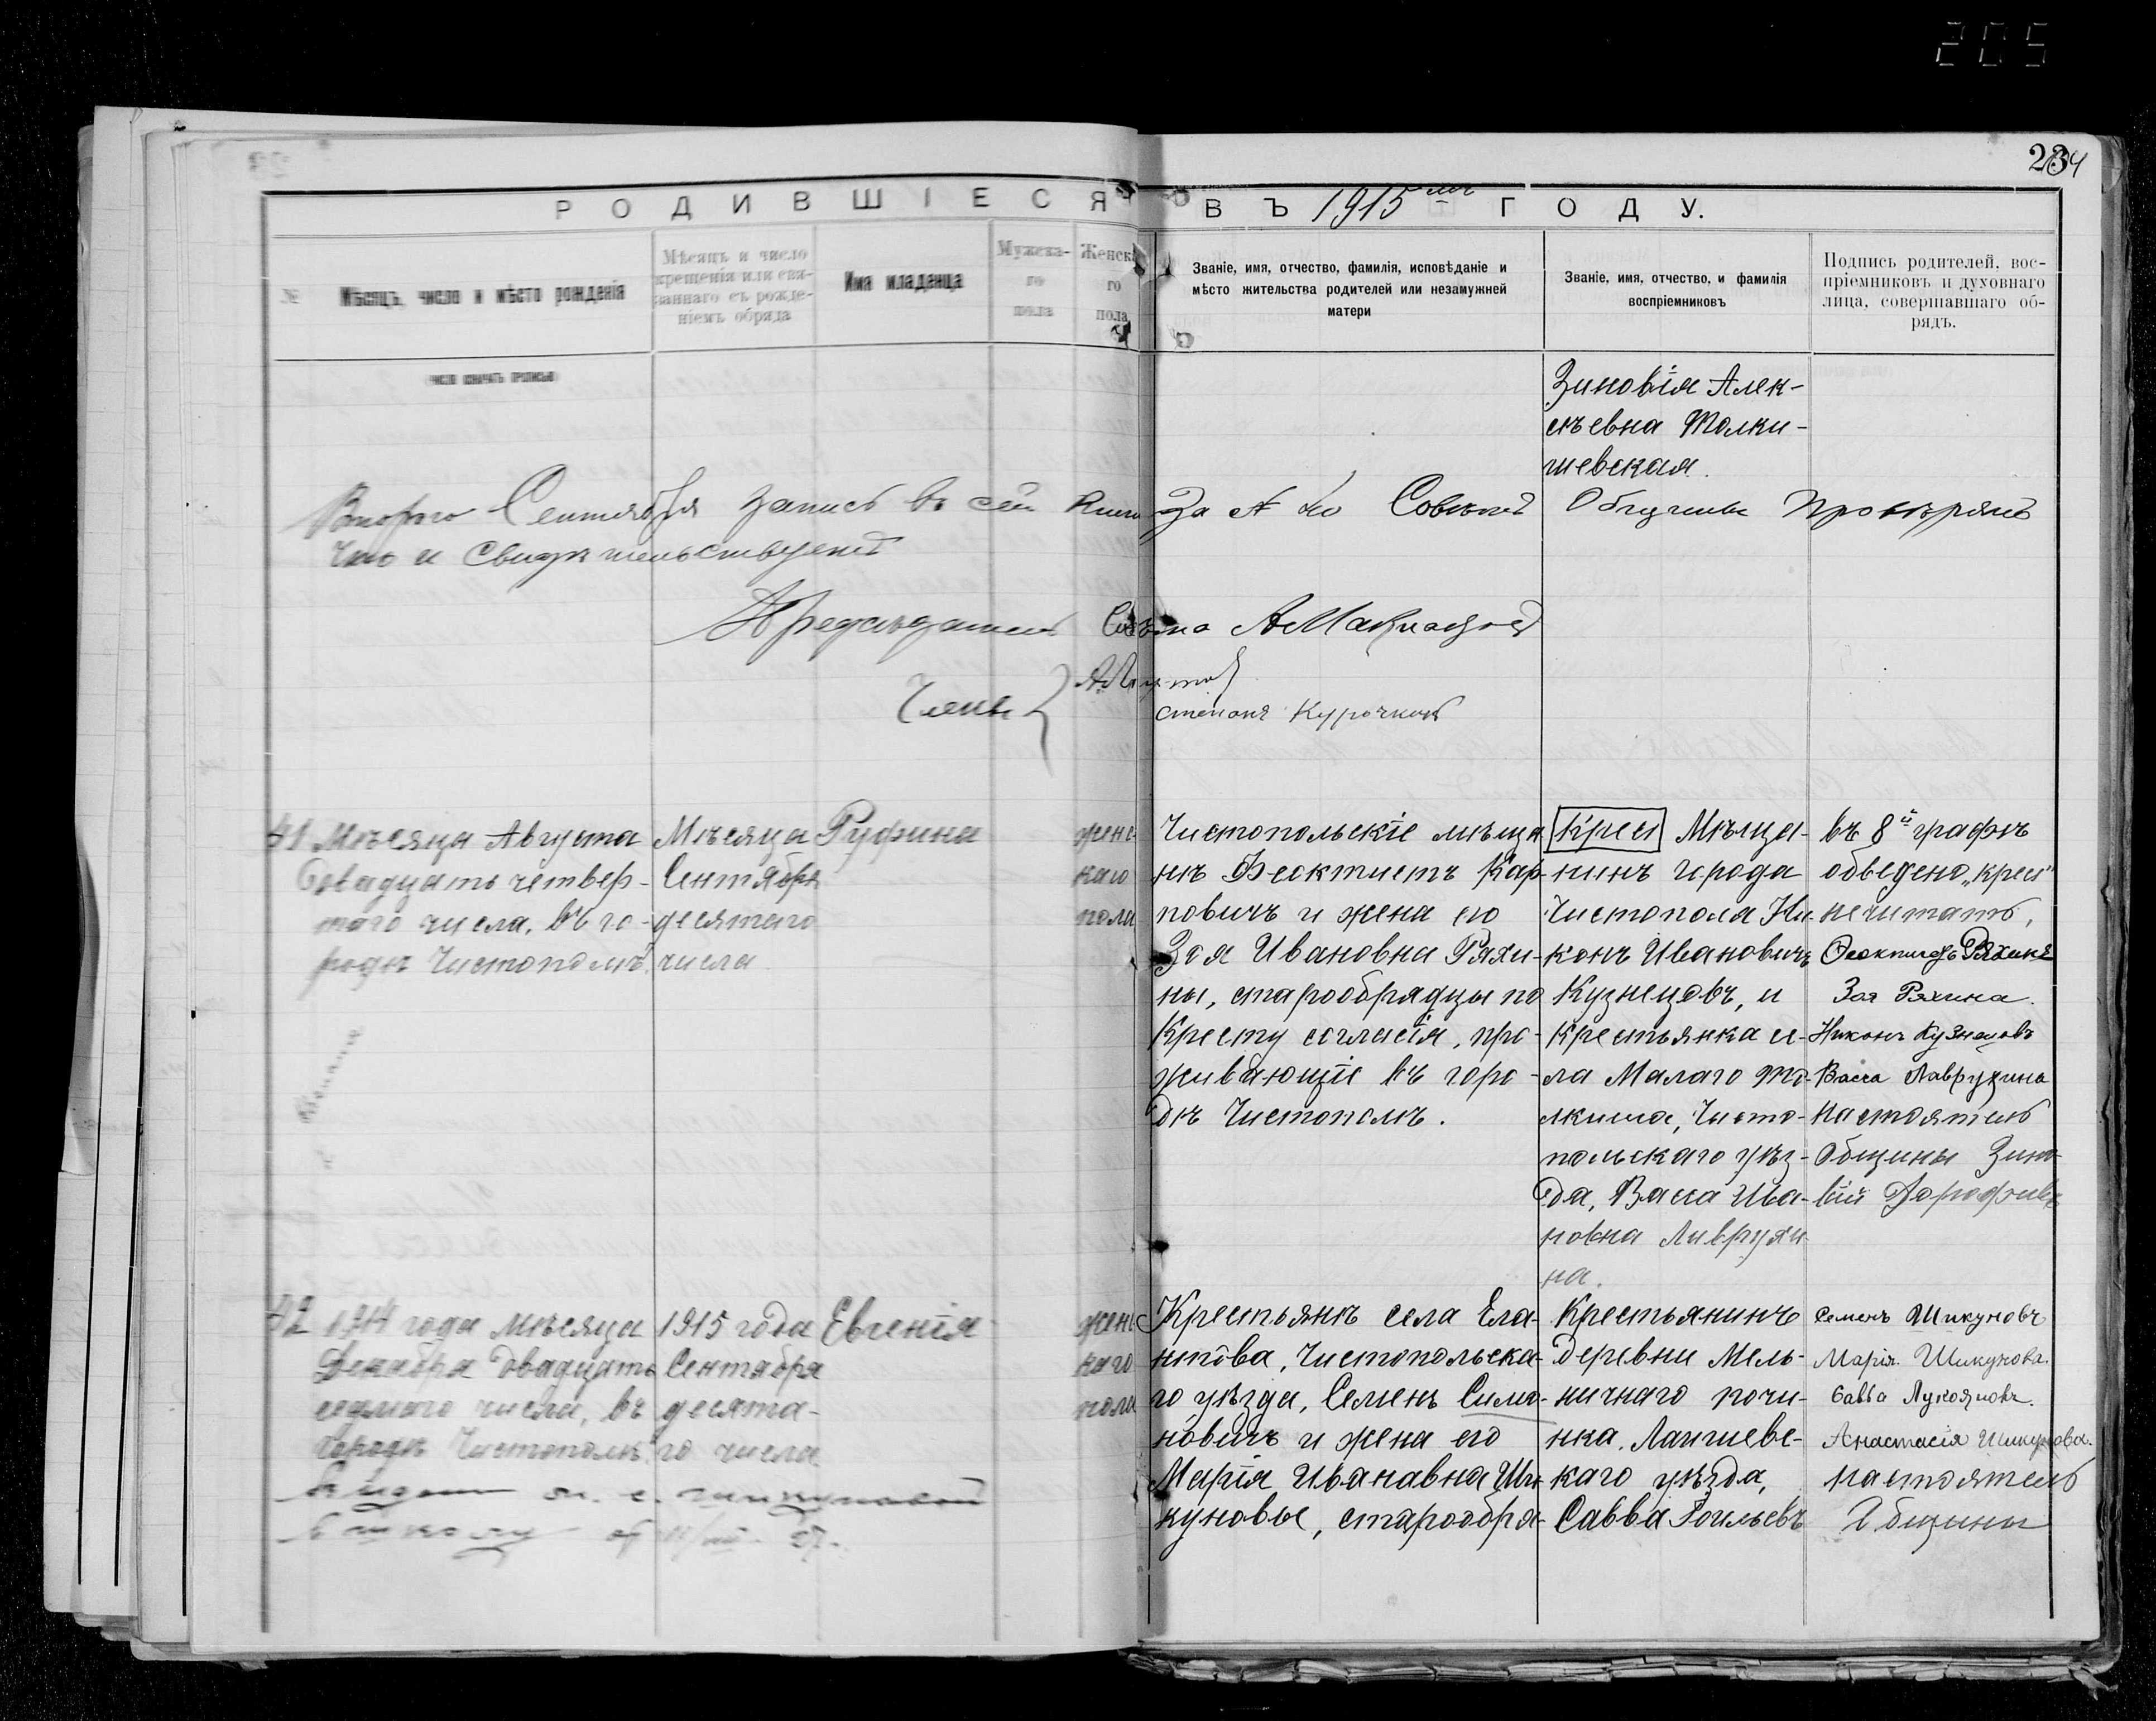 205
234
РОДИВШІЕСЯ ВЪ 1915 мъ ГОДУ.
№
Мѣсяцъ, число и мѣсто рожденія
Мѣсяцъ и число
крещенія или свя-
заннаго съ рожде-
ніемъ обряда
Имя младенца
Мужска-
го
пола
Женска
го
пола
Званіе, имя, отчество, фамилія, исповѣданіе и
мѣсто жительства родителей или незамужней
матери
Званіе, имя, отчество, и фамилія
воспріемниковъ
Подпись родителей, вос-
пріемниковъ и духовнаго
лица, совершавшаго об-
рядъ.
Зиновія Алек-
сѣевна Толки-
шевская.
Второго Сентября запись въ сей За Совѣтъ Общины Провѣрялъ
Что и Свидѣтельствуемъ
Предсѣдатель Совѣта
Члены
Степанъ Курочкинъ
41
Мѣсяца Августа
двадцать четвер-
таго числа, въ го-
родѣ Чистополѣ.
Мѣсяца
Сентября
десятаго
числа
Руфина
женс-
каго
пола
Чистопольскіе мѣща-
нѣ Феоктистъ Кар-
повичъ и жена его
Зоя Ивановна Ряхи-
ны, старообрядцы по
Кресту согласія, про-
живающіе въ горо-
дѣ Чистополѣ.
крест Мѣща-
нинъ города
Чистополя Ни-
конъ Ивановичъ
Кузнецовъ, и
крестьянка се-
ла Малаго То-
лкиша, Чисто-
польскаго уѣз-
да, Васса Ива-
новна Лаврухи
на.
въ 8й графѣ
обведено „крест"
нечитать,
Феоктистъ Ряхинъ
Зоя Ряхина.
Никонъ Кузнецовъ
Васса Лаврухина
Настоятель
Общины Зино-
вій Дорофѣевъ
42
1914 года мѣсяца
Декабря двадцать
седьмого числа, въ
городѣ Чистополѣ.
1915 года
Сентября
десята-
го числа
Евгенія
женс
каго
пола
Крестьянѣ села Ела-
нтова, Чистопольска-
го уѣзда, Семенъ Симо-
новичъ и жена его
Марія Ивановна Ши-
куновы, старообря-
Крестьянинъ
деревни Мель-
ничнаго почи-
нка, Лаишевс-
каго уѣзда,
Савва
Семенъ Шикуновъ
Марія Шикунова.
Савва Лукояновъ.
Анастасія Шикунова.
Настоятель
Общины